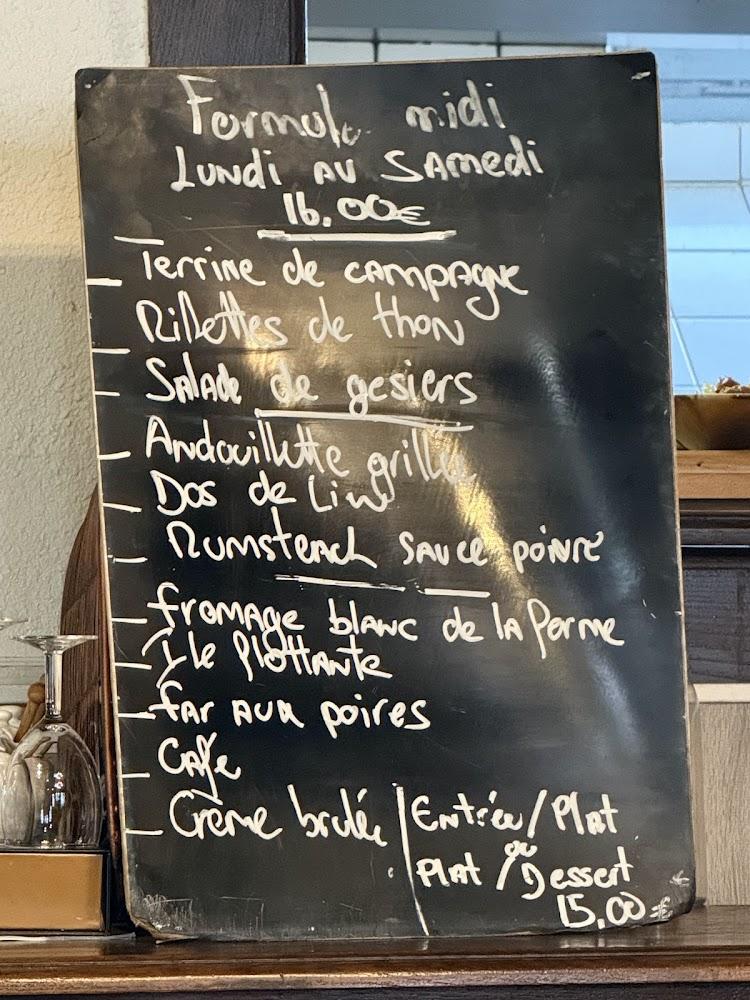 Formule midi
Lundi au Samedi
16.00€
Terrine de campagne
Rillettes de thon
Salade de gesiers
Andouillette grillée
Dos de Lieu
Rumsteack sauce poivre
fromage blanc de la ferme
Ile flottante
far aux poires
Café
Crème brulée
Entrée/Plat
ou
Plat/Dessert
15,00€